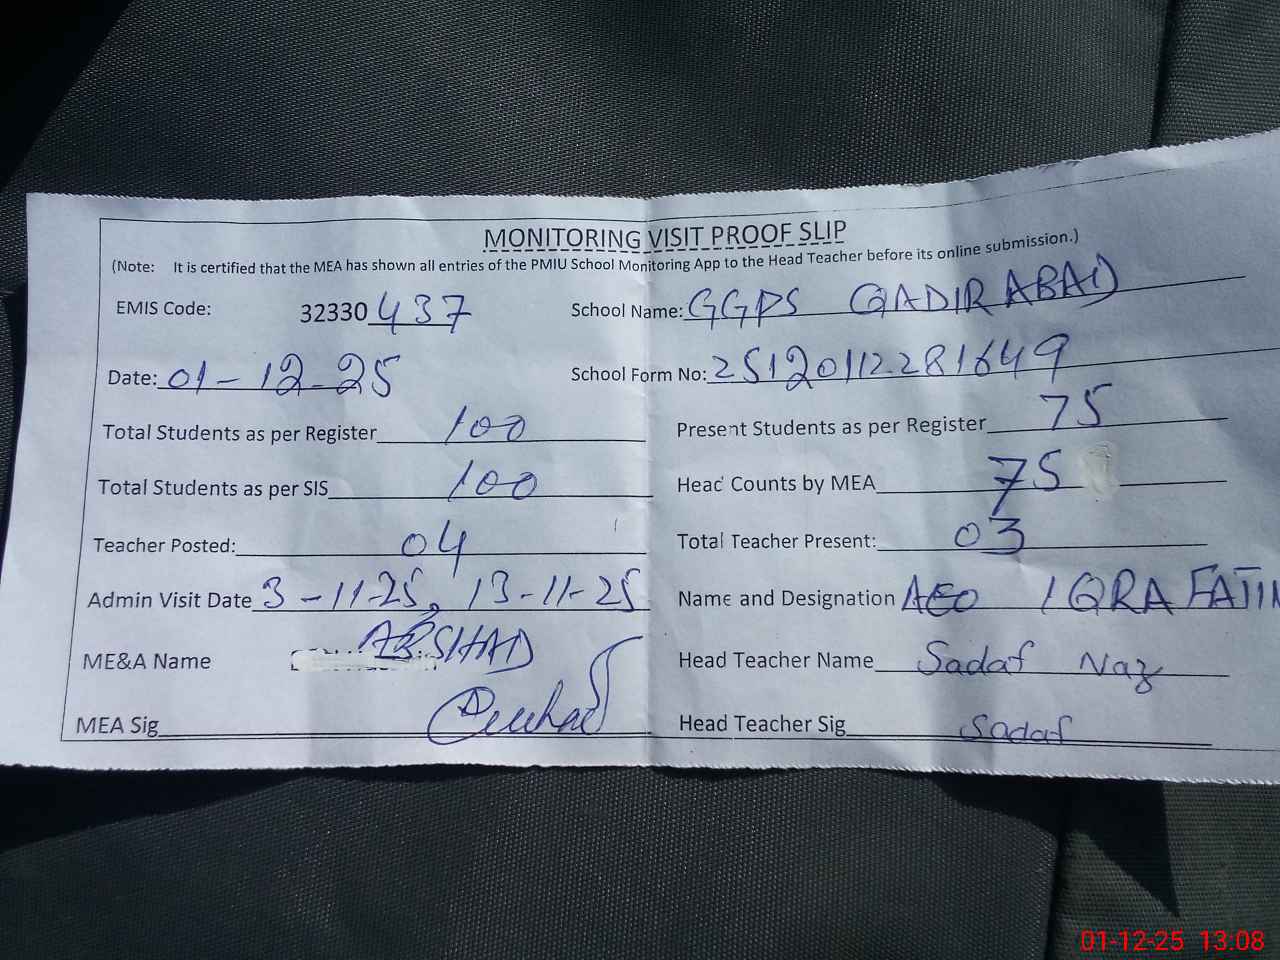 MONITORING VISIT PROOF SLIP
(Note: It is certified that the MEA has shown all entries of the PMIU School Monitoring App to the Head Teacher before its online submission.)
EMIS Code: 32330437 School Name: GGPS QADIRABAD
Date: 01-12-25 School Form No: 25120112281649
Total Students as per Register 100 Present Students as per Register 75
Total Students as per SIS 100 Head Counts by MEA 75
Teacher Posted: 04 Total Teacher Present: 03
Admin Visit Date 3-11-25, 13-11-25 Name and Designation AEO IQRA FATIM
ME&A Name ARSHAD Head Teacher Name Sadaf Naz
MEA Sig Head Teacher Sig Sadaf
01-12-25 13:08